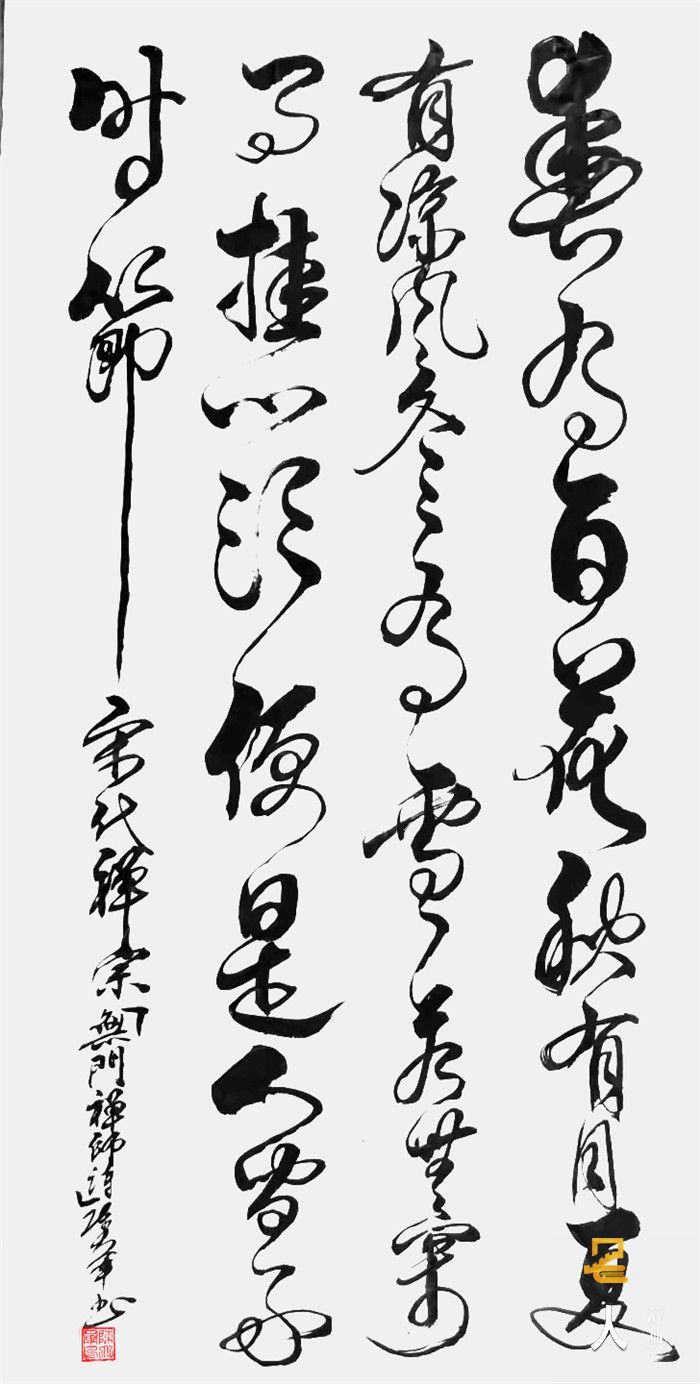 春有百花秋有月夏
有凉风冬有雪若無闲
事挂心头便是人间好
时節
宋代禪宗無門禪師詩 书